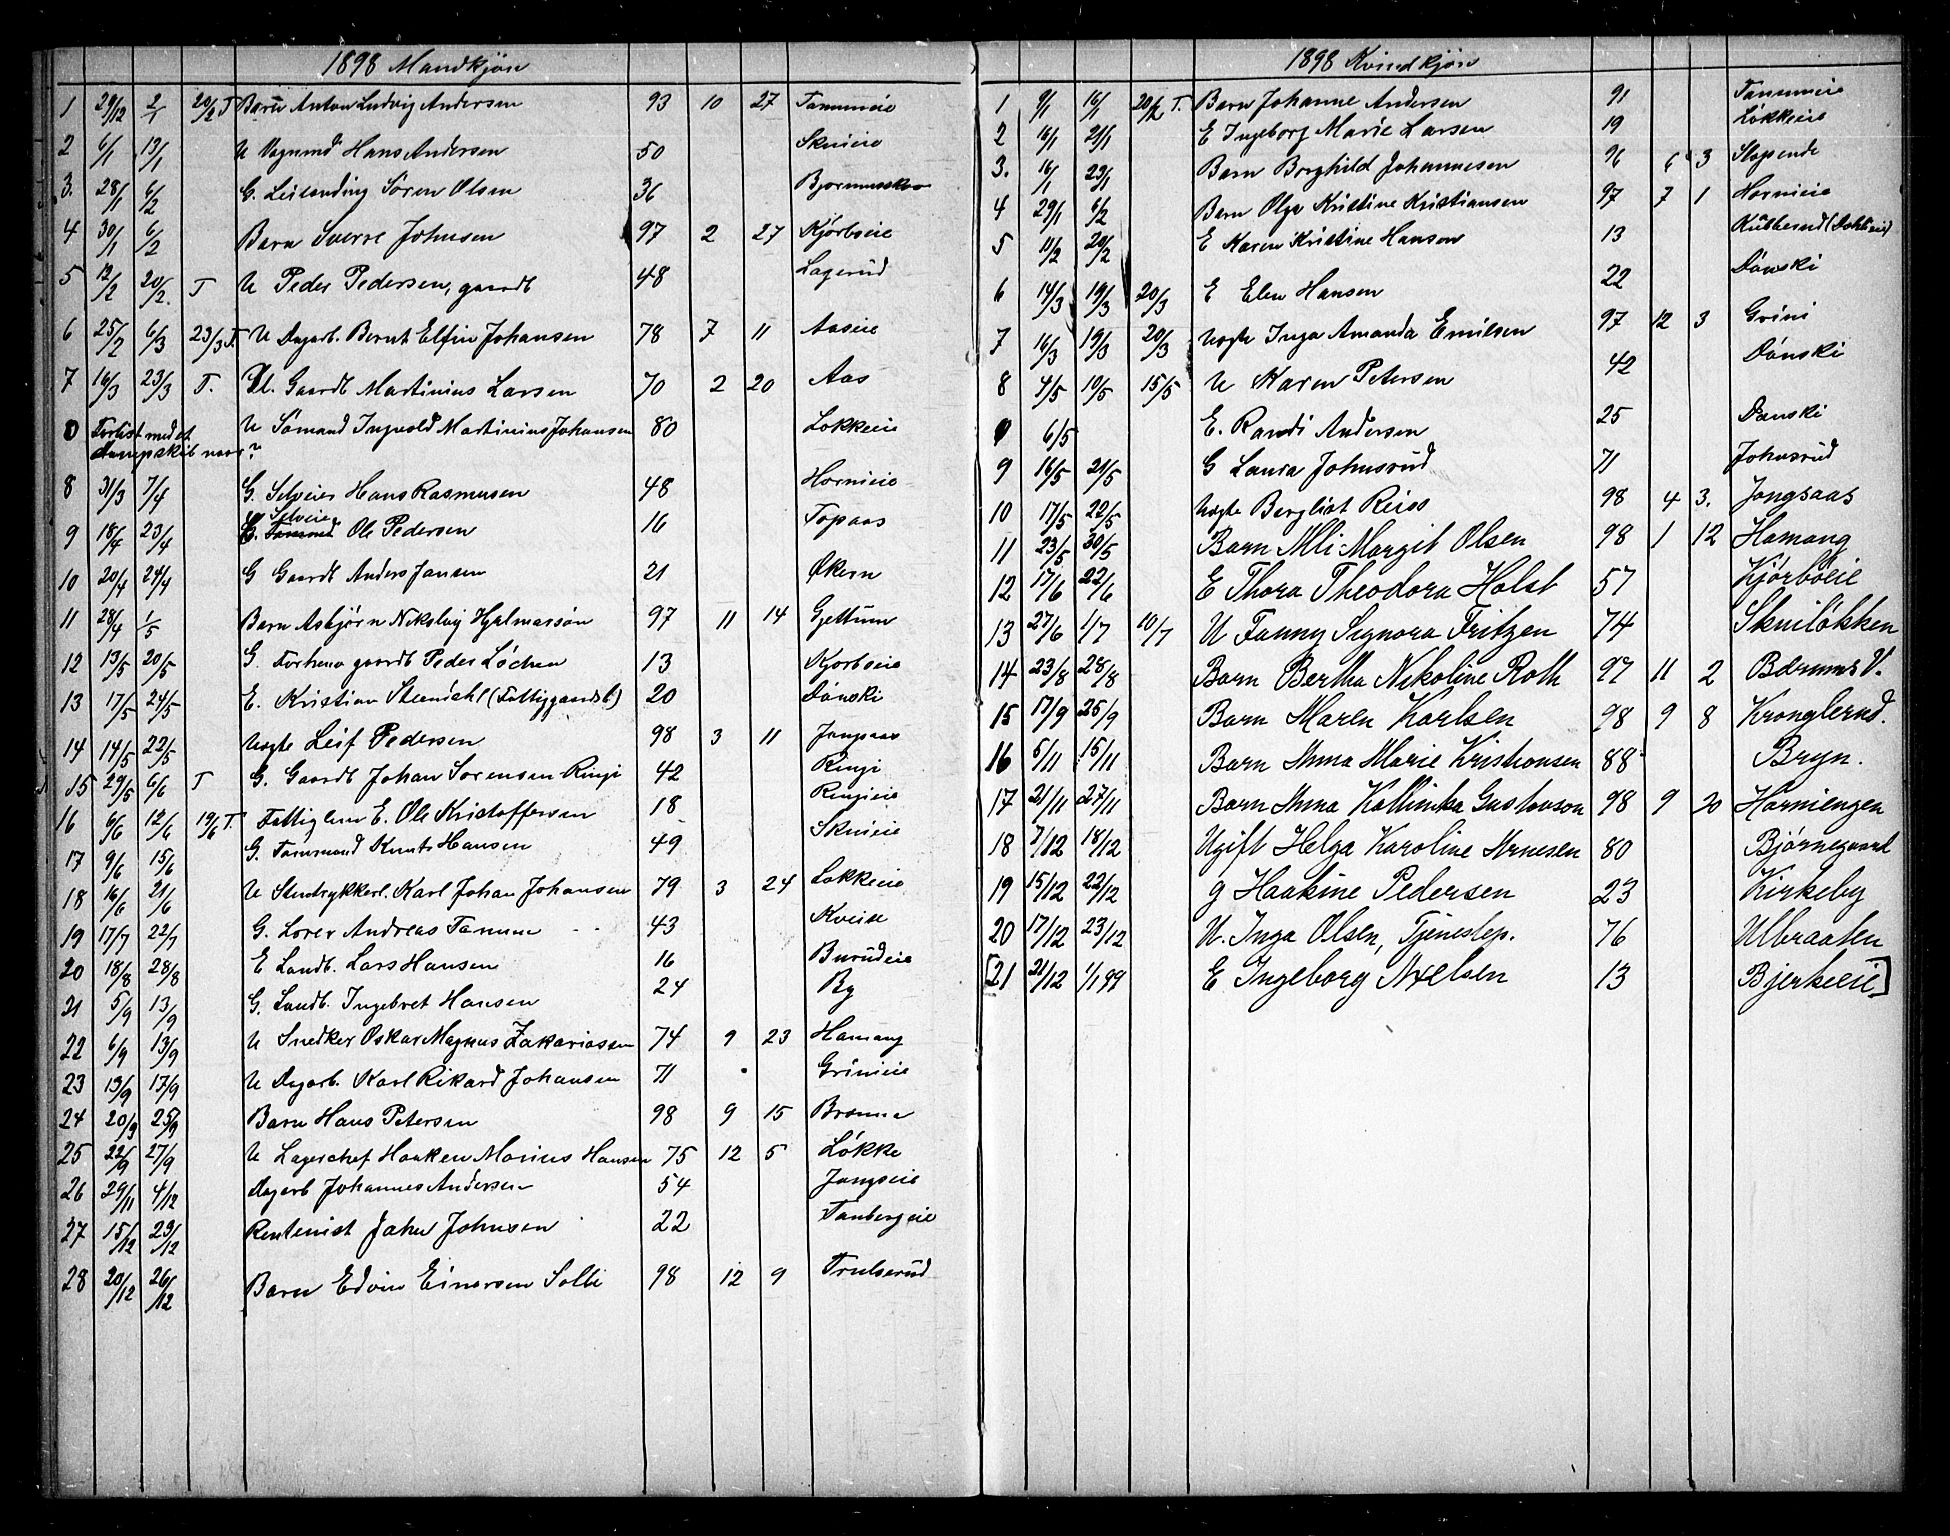 1898 Mandkjøn
1 29/12 2/1 20/2 T Barn Anton Ludvig Andersen 93 10 27 Tanumeie
2 6/1 13/1 U Vognmd Hans Andersen 50 Skuieie
3. 28/1 6/2 G. Leilending Søren Olsen 36
4 30/1 6/2 Barn Sverre Johnsen 97 2 27 Kjørboeie
5 12/2 20/2. T U Peder Pedersen, gaardb 48 Lagerud
6 25/2 6/3 23/3 T. U Dagarb. Bernt Elfin Johansen 78 7 11 Aaseie
7 16/3 23/3 T. U. Gaardb Martinius Larsen 70 2 20 Aas
0 Forlist med et U Sømand Ingvold Martinius Johansen 80 Løkkeie
dampskib naar?
8 31/3 7/4 G. Selveier Hans Rasmusen 48 Hornieie
Selveier
9 18/4 23/4 Ole Pedersen 16 Topaas
10 20/4 24/4 G Gaardb Anders Jansen 21 Økern
11 28/4 1/5 Barn Asbjørn Nikolay Hjalmarsøn 97 11 14 Gjettum
12 13/5 20/5 G. Forhenv gaardb Peder Løchen 13 Kjørboeie
13 17/5 24/5 E. Kristian Steendahl (Fattiggaardsl) 20 Dønski
14 14/5 22/5 uægte Leif Pedersen 98 3 11 Jongsaas
15 29/5 6/6 T G. Gaardb Johan Sørensen Ringi 42 Ringi
16 6/6 12/6 19/6 T. Fattiglem E. Ole Kristoffersen 18 Ringieie
17 9/6 15/6 G. Tømmermd Knut Hansen 49 Skuieie
18 16/6 21/6 U Stentrykkerl. Karl Johan Johansen 79 3 24 Løkkeie
19 17/7 22/7 G. Lærer Andreas Tanum 43 Kveise
20 18/8 28/8 E Landb. Lars Hansen 16 Burudeie
21 5/9 13/9 G. Landb. Ingebret Hansen 24 By
22 6/9 13/9 U Snedker Oskar Magnus Zakariassen 74 9 23 Hamang
23 13/9 17/9 U Dagarb. Karl Rikard Johansen 71 Grinieie
24 20/9 25/9 Barn Hans Petersen 98 9 15 Brønna
25 22/9 27/9 U Lagerchef Haaken Marius Hansen 75 12 5 Løkke
26 29/11 4/12 Dagarb Johannes Andersen 54 Jongseie
27 15/12 23/12 Rentenist John Johnsen 22 Tanbergeie
28 20/12 26/12 Barn Edvin Einarsen Solli 98 12 9 Trulserud
1898 Kvindkjøn
1 9/1 16/1 20/2 T. Barn Johanne Andersen 91 Tanumeie
2 16/1 21/1 E Ingeborg Marie Larsen 19 Løkkeie
3. 16/1 23/1 Barn Borghild Johannesen 96 6 3 Slependе
4 29/1 6/2 Barn Olga Kristine Kristiansen 97 7 1 Hornieie
5 11/2 20/2 E Karen Kristine Hansen 13 Rubberud
6 14/3 19/3 20/3 E Elen Hansen 22 Dønski
7 16/3 19/3 20/3 uægte Inga Amanda Emilsen 97 12 3 Grini
8 4/5 10/5 15/5 U Karen Petersen 42 Dønski
6/5 E. Randi Andersen 25 Dønski
9 16/5 21/5 G Laura Johnsrud 71 Johnsrud
10 17/5 22/5 uægte Bergliot Reiss 98 4 3. Jongsaas
11 23/5 30/5 Barn Alli Margit Olsen 98 1 12 Hamang
12 17/6 22/6 E Thora Theodora Holst 57 Kjørboeie
13 27/6 1/7 10/7 U Fanny Signora Fritzen 74 Skuiløkken
14 23/8 28/8 Barn Bertha Nikoline Roth 97 11 2 Bærums V.
15 17/9 25/9 Barn Maren Karlsen 98 9 8 Kronglerud.
16 5/11 15/11 Barn Anna Marie Kristiansen 88 Bryn.
17 21/11 27/11 Barn Anna Kathinka Gustavson 98 9 20 Horniengen
18 7/12 18/12 Ugift Helga Karoline Arnesen 80 Bjørnegaard
19 15/12 22/12 g Haakine Pedersen 23 Kirkeby
20 17/12 23/12 U. Inga Olsen, Tjenestep. 76 Ulbraaten
[21 21/12 1/1 99 E Ingeborg Nielsen 13 Bjerkeeie]